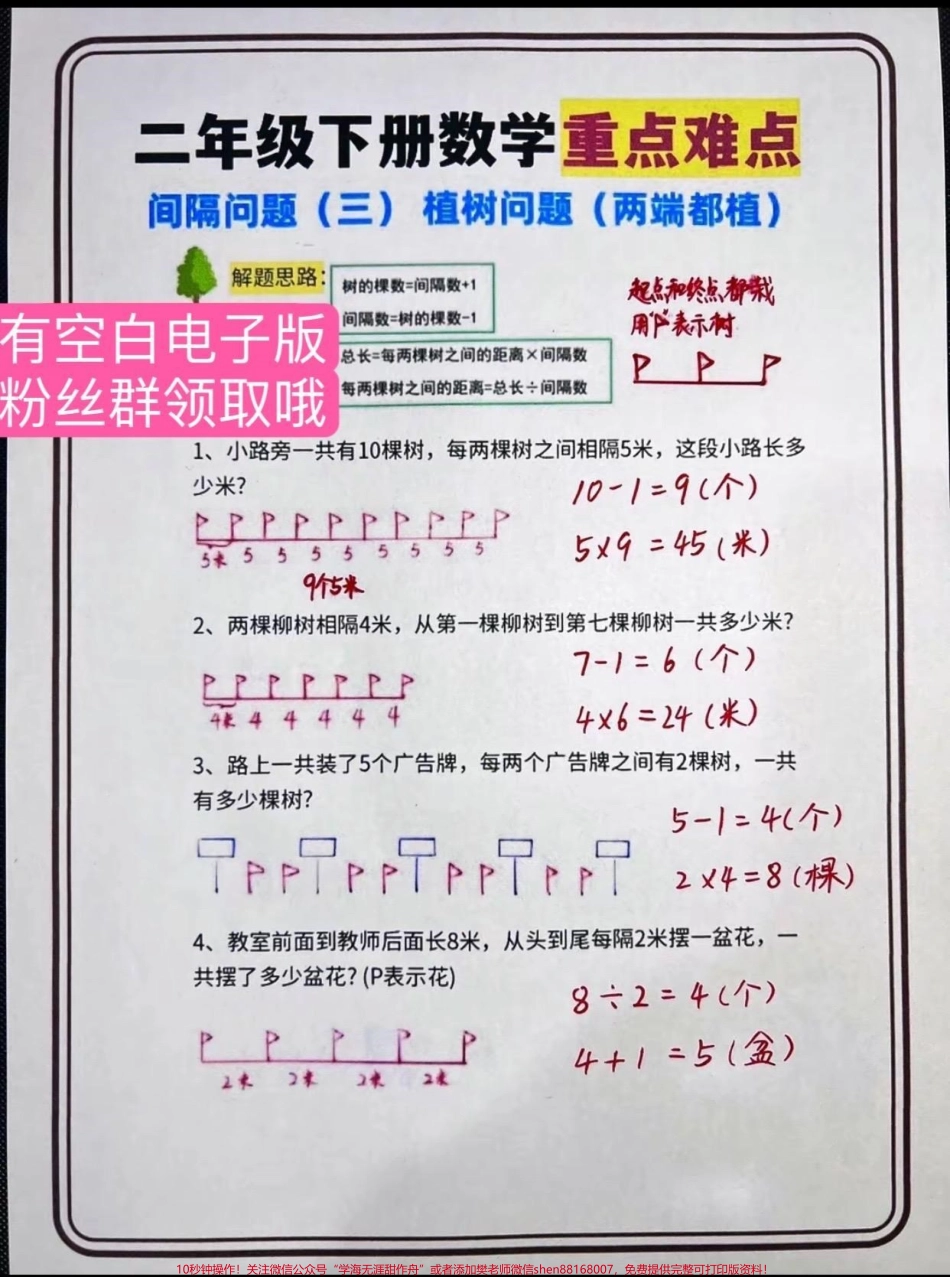 二年级下册数学重点难点
间隔问题（三） 植树问题（两端都植）
解题思路：
树的棵数=间隔数+1
间隔数=树的棵数-1
总长=每两棵树之间的距离×间隔数
每两棵树之间的距离=总长÷间隔数
起点和终点都栽
用"P"表示树
有空白电子版
粉丝群领取哦
1、小路旁一共有10棵树，每两棵树之间相隔5米，这段小路长多
少米?
10-1=9(个)
5×9=45(米)
5米 5 5 5 5 5 5 5 5
9个5米
2、两棵柳树相隔4米，从第一棵柳树到第七棵柳树一共多少米?
7-1=6(个)
4×6=24(米)
4米 4 4 4 4 4
3、路上一共装了5个广告牌，每两个广告牌之间有2棵树，一共
有多少棵树?
5-1=4(个)
2×4=8(棵)
4、教室前面到教师后面长8米，从头到尾每隔2米摆一盆花，一
共摆了多少盆花? (P表示花)
8÷2=4(个)
4+1=5(盆)
2米 2米 2米 2米
10秒钟操作！关注微信公众号“学海无涯甜作舟”或者添加樊老师微信shen88168007，免费提供完整可打印版资料！